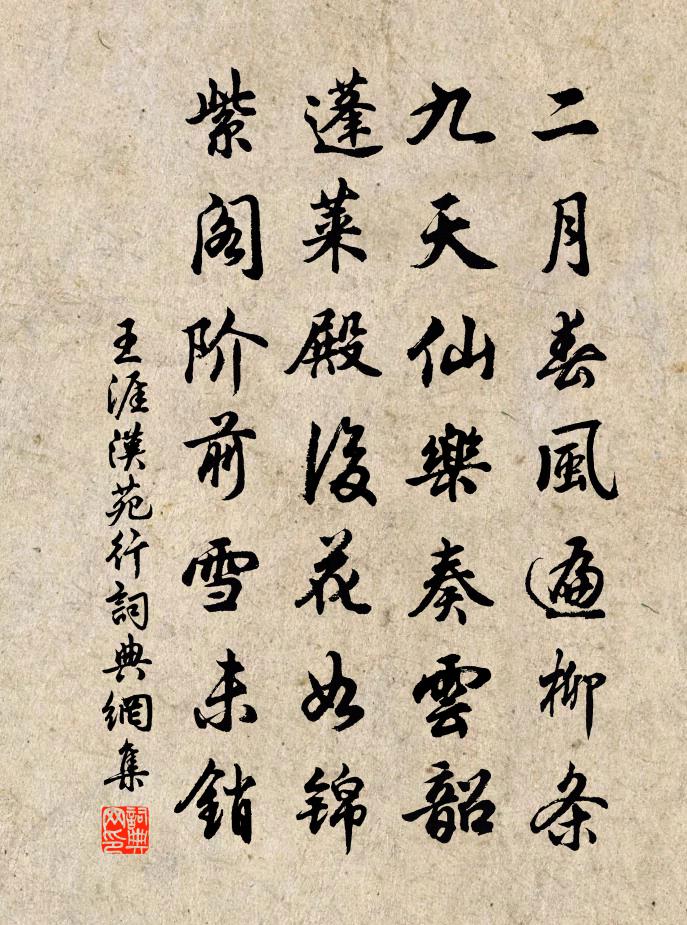 二月春風遍柳条
九天仙樂奏雲韶
蓬萊殿後花如錦
紫阁阶前雪未銷
王涯漢苑行詞典網集
詞典網印